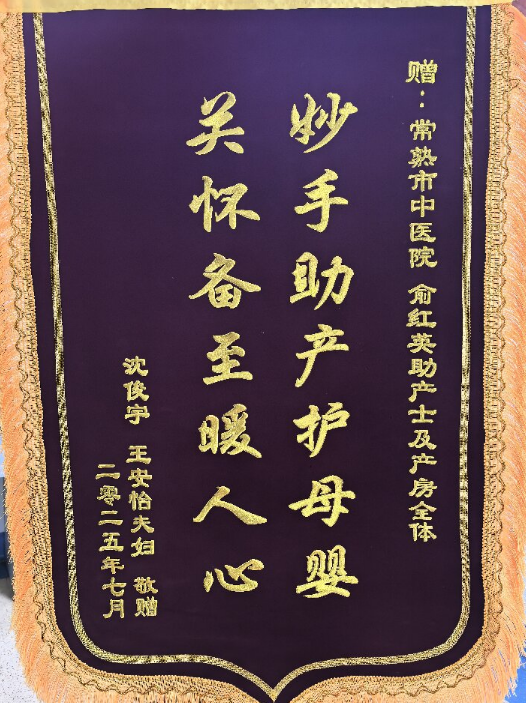 赠：常熟市中医院 俞红英助产士及产房全体
妙手助产护母婴
关怀备至暖人心
沈俊宇 王安怡夫妇 敬赠
二零二五年七月